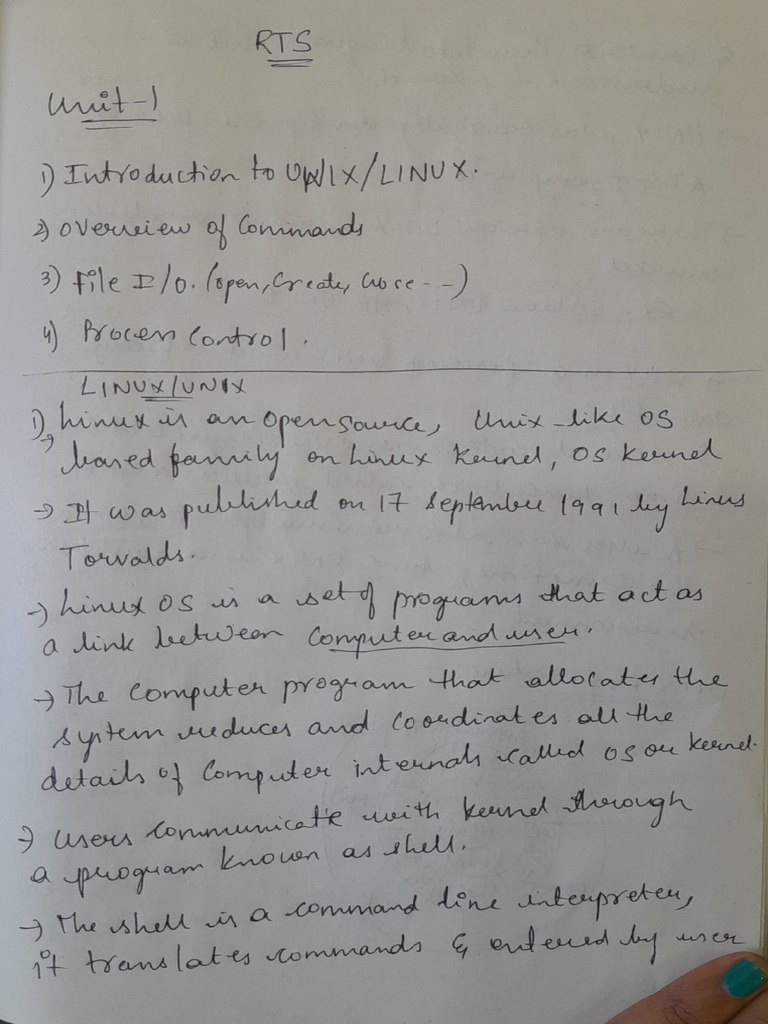 RTS
Unit-1
1) Introduction to UNIX/LINUX.
2) Overview of Commands
3) File I/O. (open, Create, close - -)
4) Process Control.
LINUX/UNIX
1) Linux is an open source, Unix-like OS
→ based family on Linux kernel, OS kernel
→ It was published on 17 September 1991 by Linus
Torvalds.
→ Linux OS is a set of programs that act as
a link between computer and user.
→ The computer program that allocates the
system reduces and coordinates all the
details of computer internals called OS or kernel.
→ Users communicate with kernel through
a program known as shell.
→ The shell is a command line interpreter,
it translates commands & entered by user